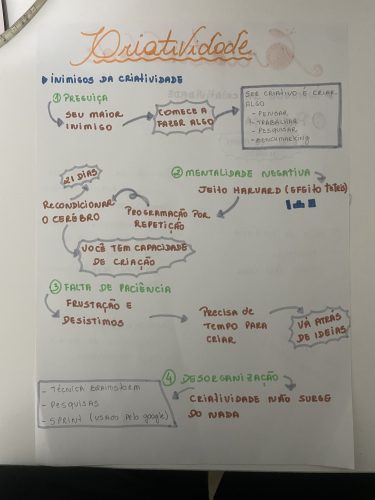 Criatividade
INIMIGOS DA CRIATIVIDADE
1 PREGUIÇA
SEU MAIOR
INIMIGO
COMECE A
FAZER ALGO
SER CRIATIVO É CRIAR
ALGO
- PENSAR
- TRABALHAR
- PESQUISAR
- BENCHMARKING
2 MENTALIDADE NEGATIVA
JEITO HARVARD (EFEITO TETRIS)
21 DIAS
RECONDICIONAR
O CERÉBRO
PROGRAMAÇÃO POR
REPETIÇÃO
VOCÊ TEM CAPACIDADE
DE CRIAÇÃO
3 FALTA DE PACIÊNCIA
FRUSTAÇÃO E
DESISTIMOS
PRECISA DE
TEMPO PARA
CRIAR.
VÁ ATRÁS
DE IDEIAS
4 DESORGANIZAÇÃO
CRIATIVIDADE NÃO SURGE
DO NADA
- TÉCNICA BRAINSTORM
- PESQUISAS
- SPRINT (USADO PELO google)